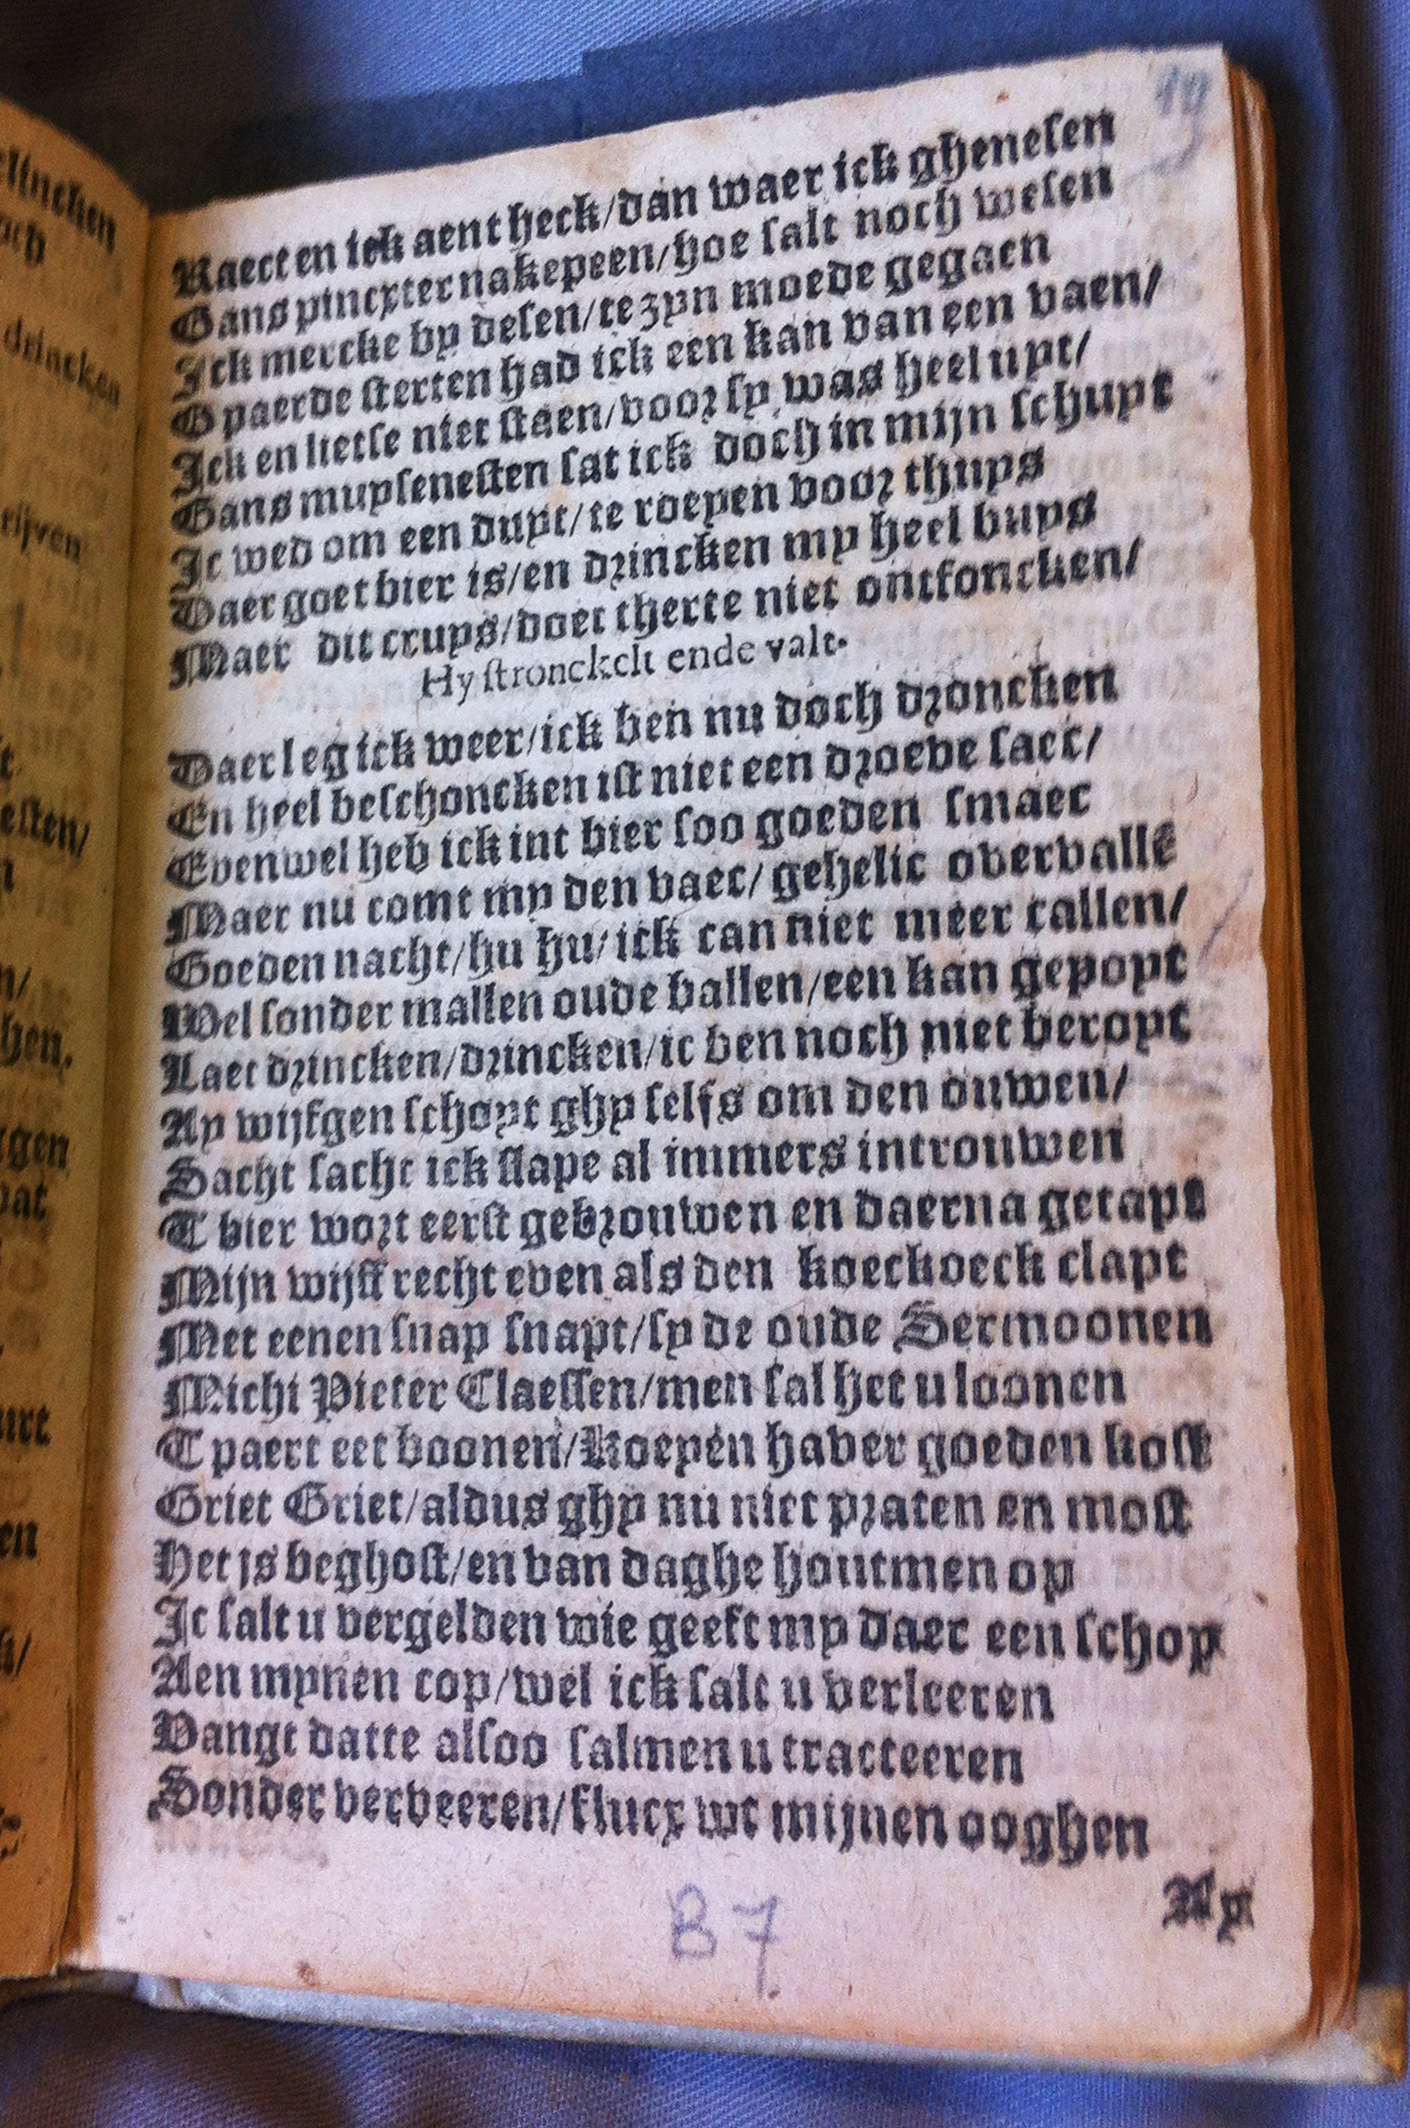 19
Raect en ick aent heck/dan waer ick ghenesen
Gans pincxter nakepeen/hoe salt noch wesen
Ick mercke by desen/te zyn moede gegaen
O paerde sterten had ick een kan van een vaen/
Ick en lietse niet staen/voor sy was heel uyt/
Gans muysenesten sat ick doch in mijn schuyt
Ic wed om een duyt/te roepen voor thuys
Daer goet bier is/en drincken my heel buys
Maer dit cruys/doet therte niet ontfoncken/
Hy stronckelt ende valt.
Daer leg ick weer/ick ben nu doch droncken
En heel beschoncken ist niet een droeve saec/
Evenwel heb ick int bier soo goeden smaec
Maer nu comt my den vaec/gehelic overvallē
Goeden nacht/hu hu/ick can niet meer callen/
Wel sonder mallen oude ballen/een kan gepopt
Laet drincken/drincken/ic ben noch niet beropt
Ay wijfgen schopt ghy selfs om den ouwen/
Sacht sacht ick slape al immers introuwen
T bier wort eerst gebrouwen en daerna getapt
Mijn wijff recht even als den koeckoeck clapt
Met eenen snap snapt/sy de oude Sermoonen
Michi Pieter Claessen/men sal het u loonen
T paert eet boonen/Koeyen haver goeden kost
Griet Griet/aldus ghy nu niet praten en most
Het js beghost/en van daghe houtmen op
Ic salt u vergelden wie geeft my daer een schop
Aen mynen cop/wel ick salt u verleeren
Vangt datte alsoo salmen u tracteeren
Sonder verveeren/flucx wt mijnen ooghen
Ay
B 7
elincken
och
drincken
rijven
esten/
hen.
ggen
en